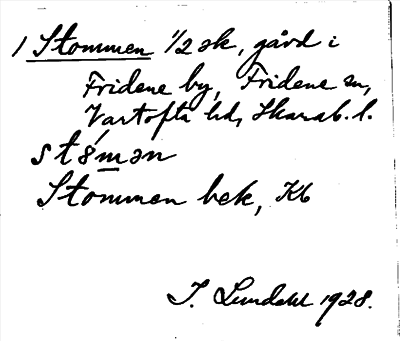 1 Stommen 1/2 sk, gård i
Fridene by, Fridene sn,
Vartofta hd, Skarab. l.
st8́mən
Stommen bek, Kb
I. Lundahl 1928.